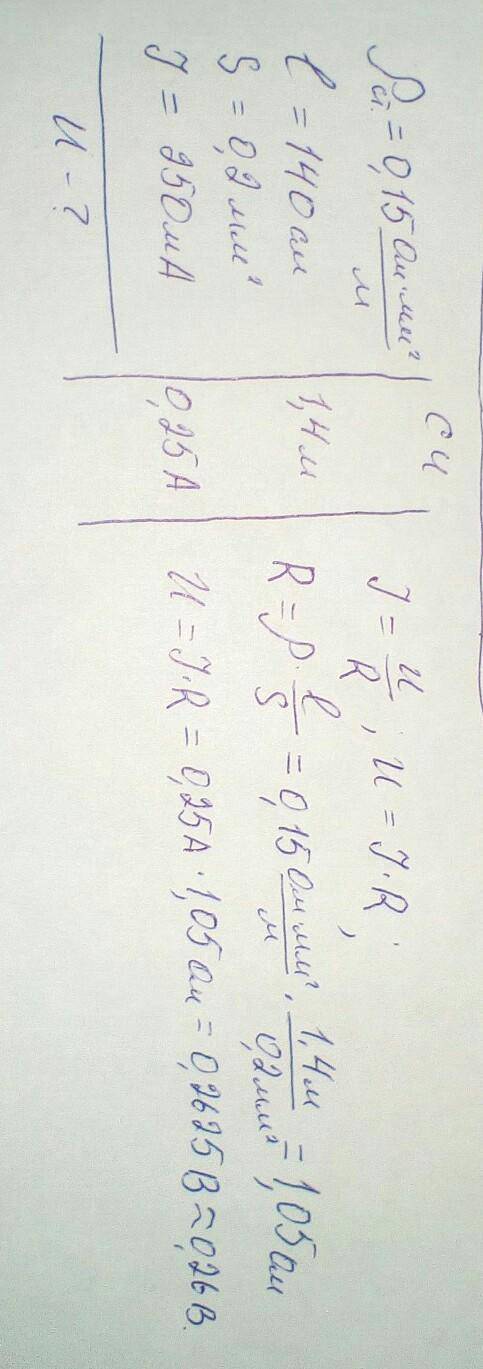 ρст. = 0,15 Ом·мм²/м
l = 140 см
S = 0,2 мм²
I = 250 мА
U - ?
СИ
1,4 м
0,25 А
I = U/R ; U = I·R ;
R = ρ · l/S = 0,15 Ом·мм²/м · 1,4 м/0,2 мм² = 1,05 Ом
U = I·R = 0,25 А · 1,05 Ом = 0,2625 В ≈ 0,26 В.